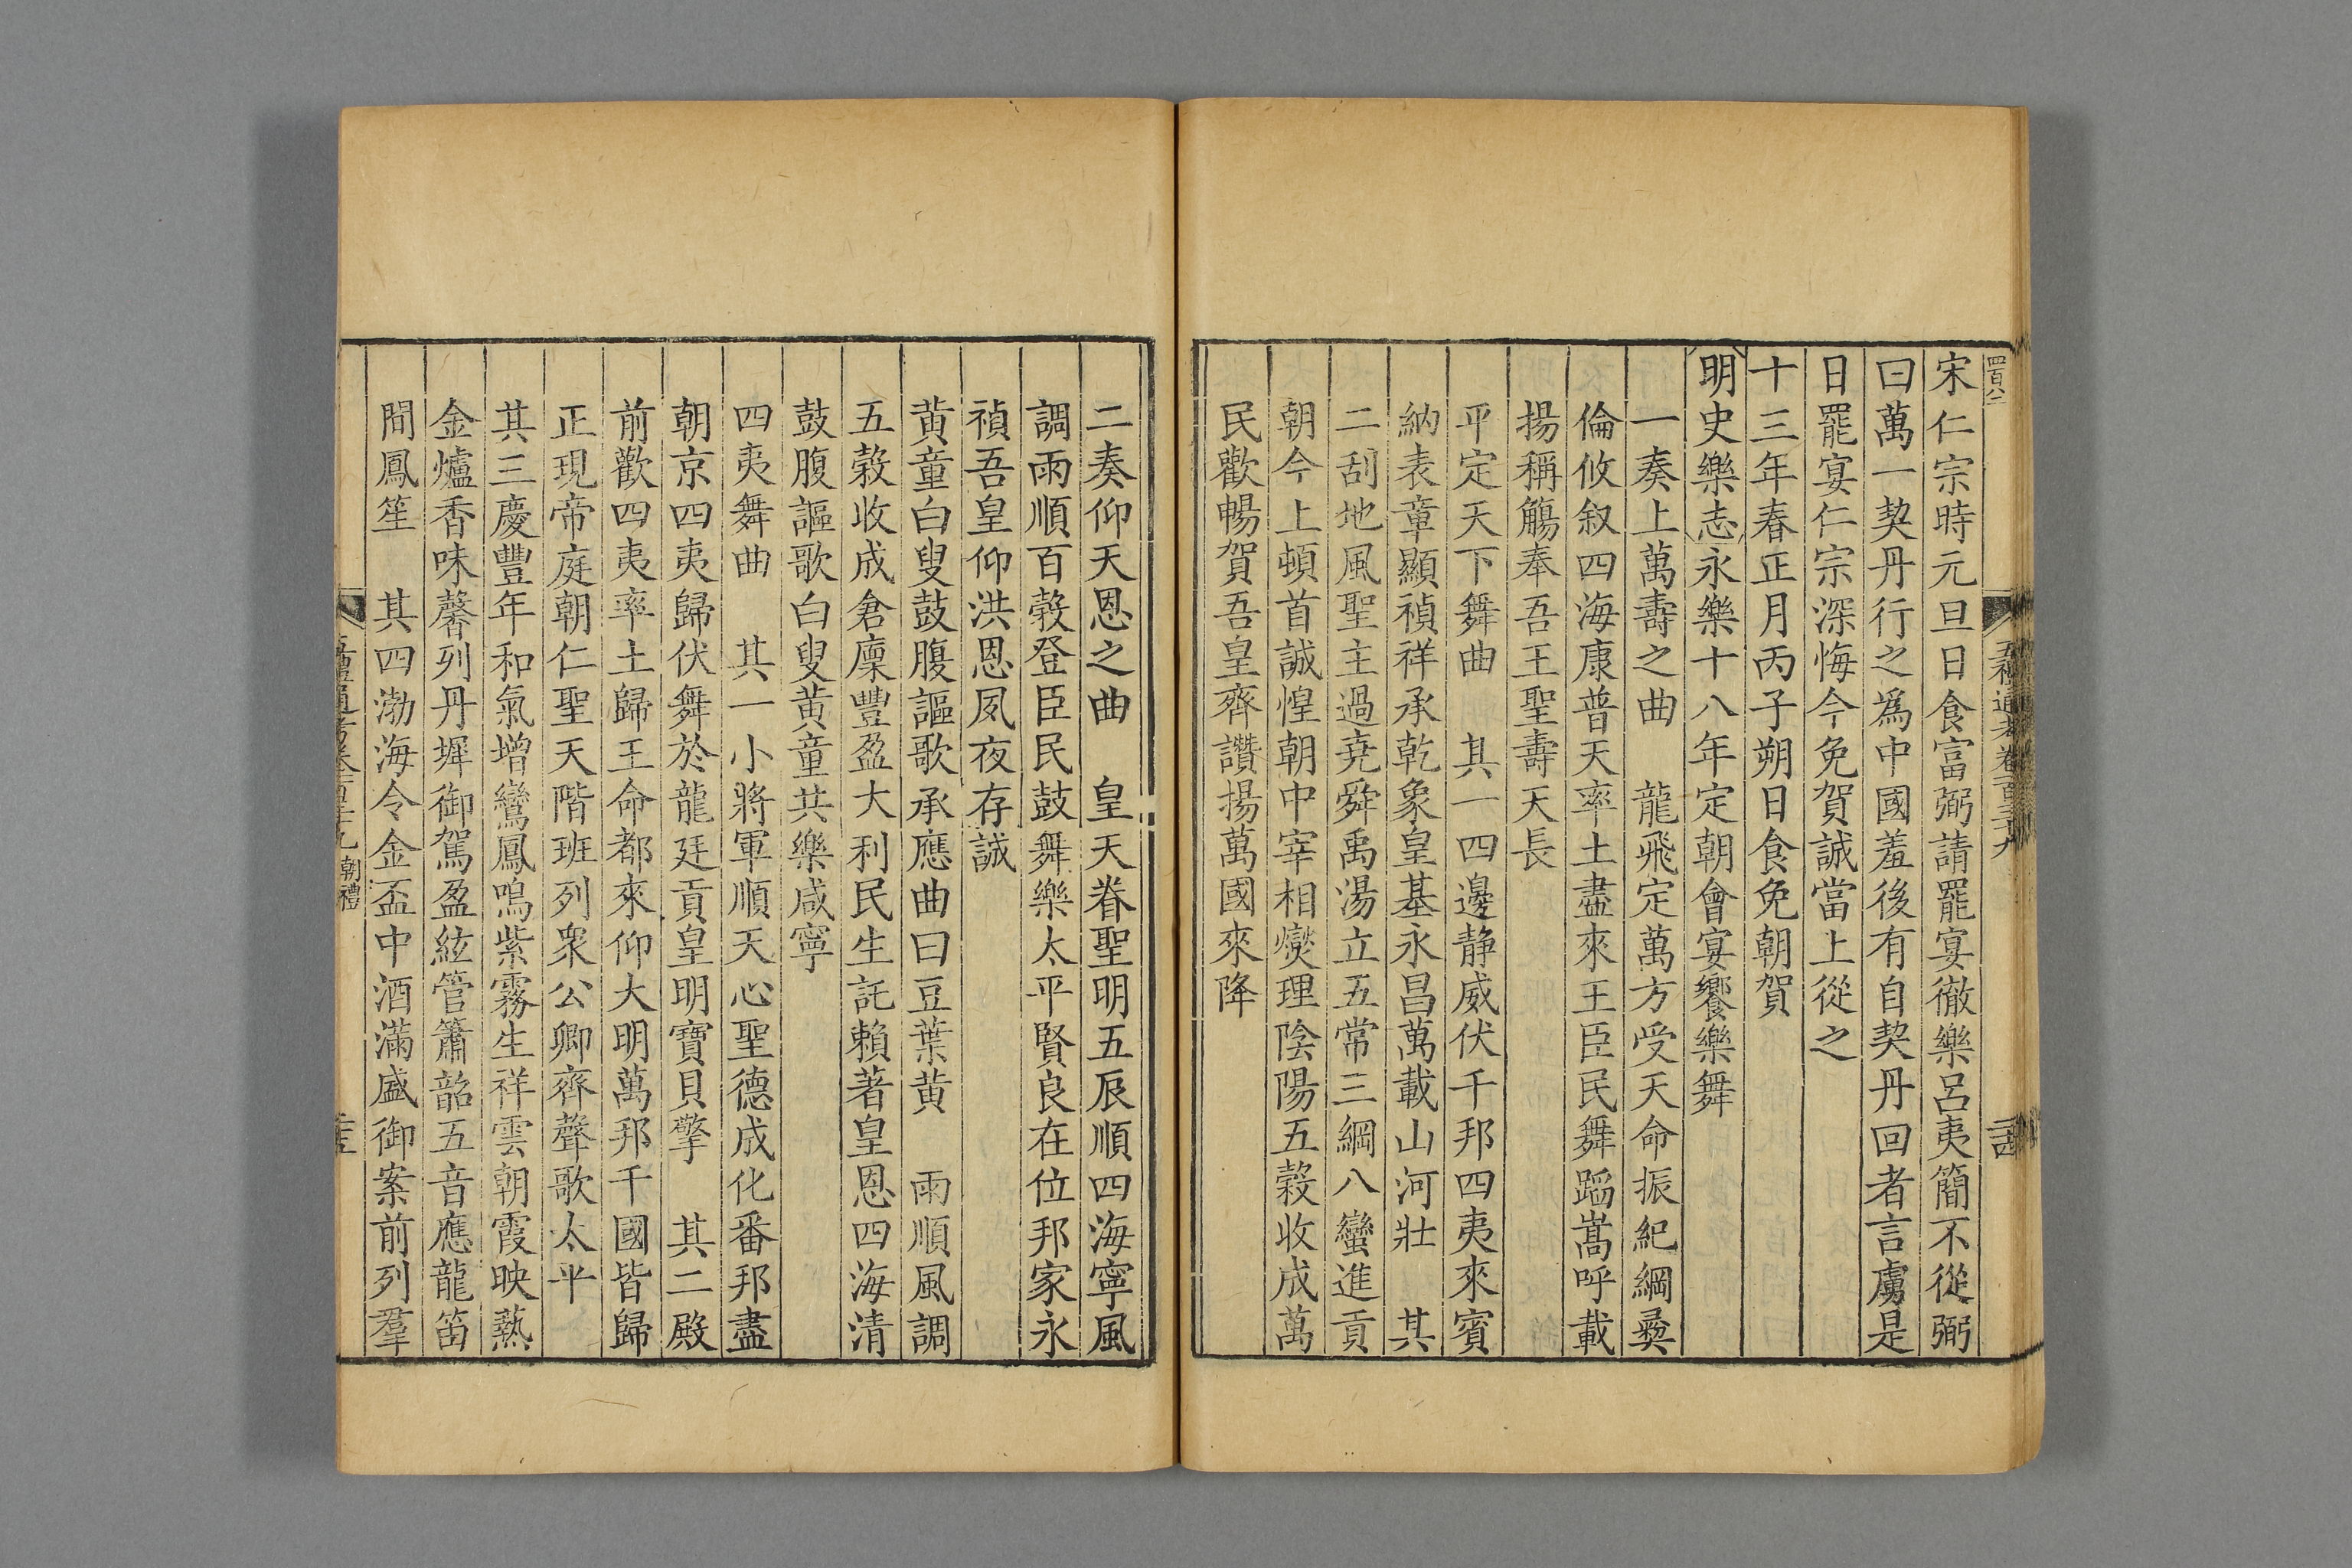 四百八
五禮通考卷一百三十九
宋仁宗時元旦日食富弼請罷宴徹樂呂夷簡不從弼
曰萬一契丹行之爲中國羞後有自契丹回者言虜是
日罷宴仁宗深悔今免賀誠當上從之
十三年春正月丙子朔日食免朝賀
明史樂志永樂十八年定朝會宴饗樂舞
一奏上萬壽之曲　龍飛定萬方受天命振紀綱彞
倫攸叙四海康普天率土盡來王臣民舞蹈嵩呼載
揚稱觴奉吾王聖壽天長
平定天下舞曲　其一四邊静威伏千邦四夷來賓
納表章顯禎祥承乾象皇基永昌萬載山河壯　其
二刮地風聖主過尭舜禹湯立五常三綱八蠻進貢
朝今上頓首誠惶朝中宰相燮理陰陽五穀收成萬
民歡暢賀吾皇齊讚揚萬國來降
二奏仰天恩之曲　皇天眷聖明五辰順四海寧風
調雨順百榖登臣民鼓舞樂太平賢良在位邦家永
禎吾皇仰洪恩夙夜存誠
黄童白叟鼓腹謳歌承應曲曰豆葉黄　雨順風調
五榖收成倉廩豐盈大利民生託賴著皇恩四海清
鼓腹謳歌白叟黄童共樂咸寧
四夷舞曲　其一小將軍順天心聖德成化番邦盡
朝京四夷歸伏舞於龍廷貢皇明寶貝擎　其二殿
前歡四夷率土歸王命都來仰大明萬邦千國皆歸
正現帝庭朝仁聖天階班列衆公卿齊聲歌太平
其三慶豐年和氣增鸞鳳鳴紫霧生祥雲朝霞映爇
金爐香味馨列丹墀御駕盈絃管簫韶五音應龍笛
間鳳笙　其四渤海令金盃中酒滿盛御案前列羣
五禮通考卷一百三十九 朝禮